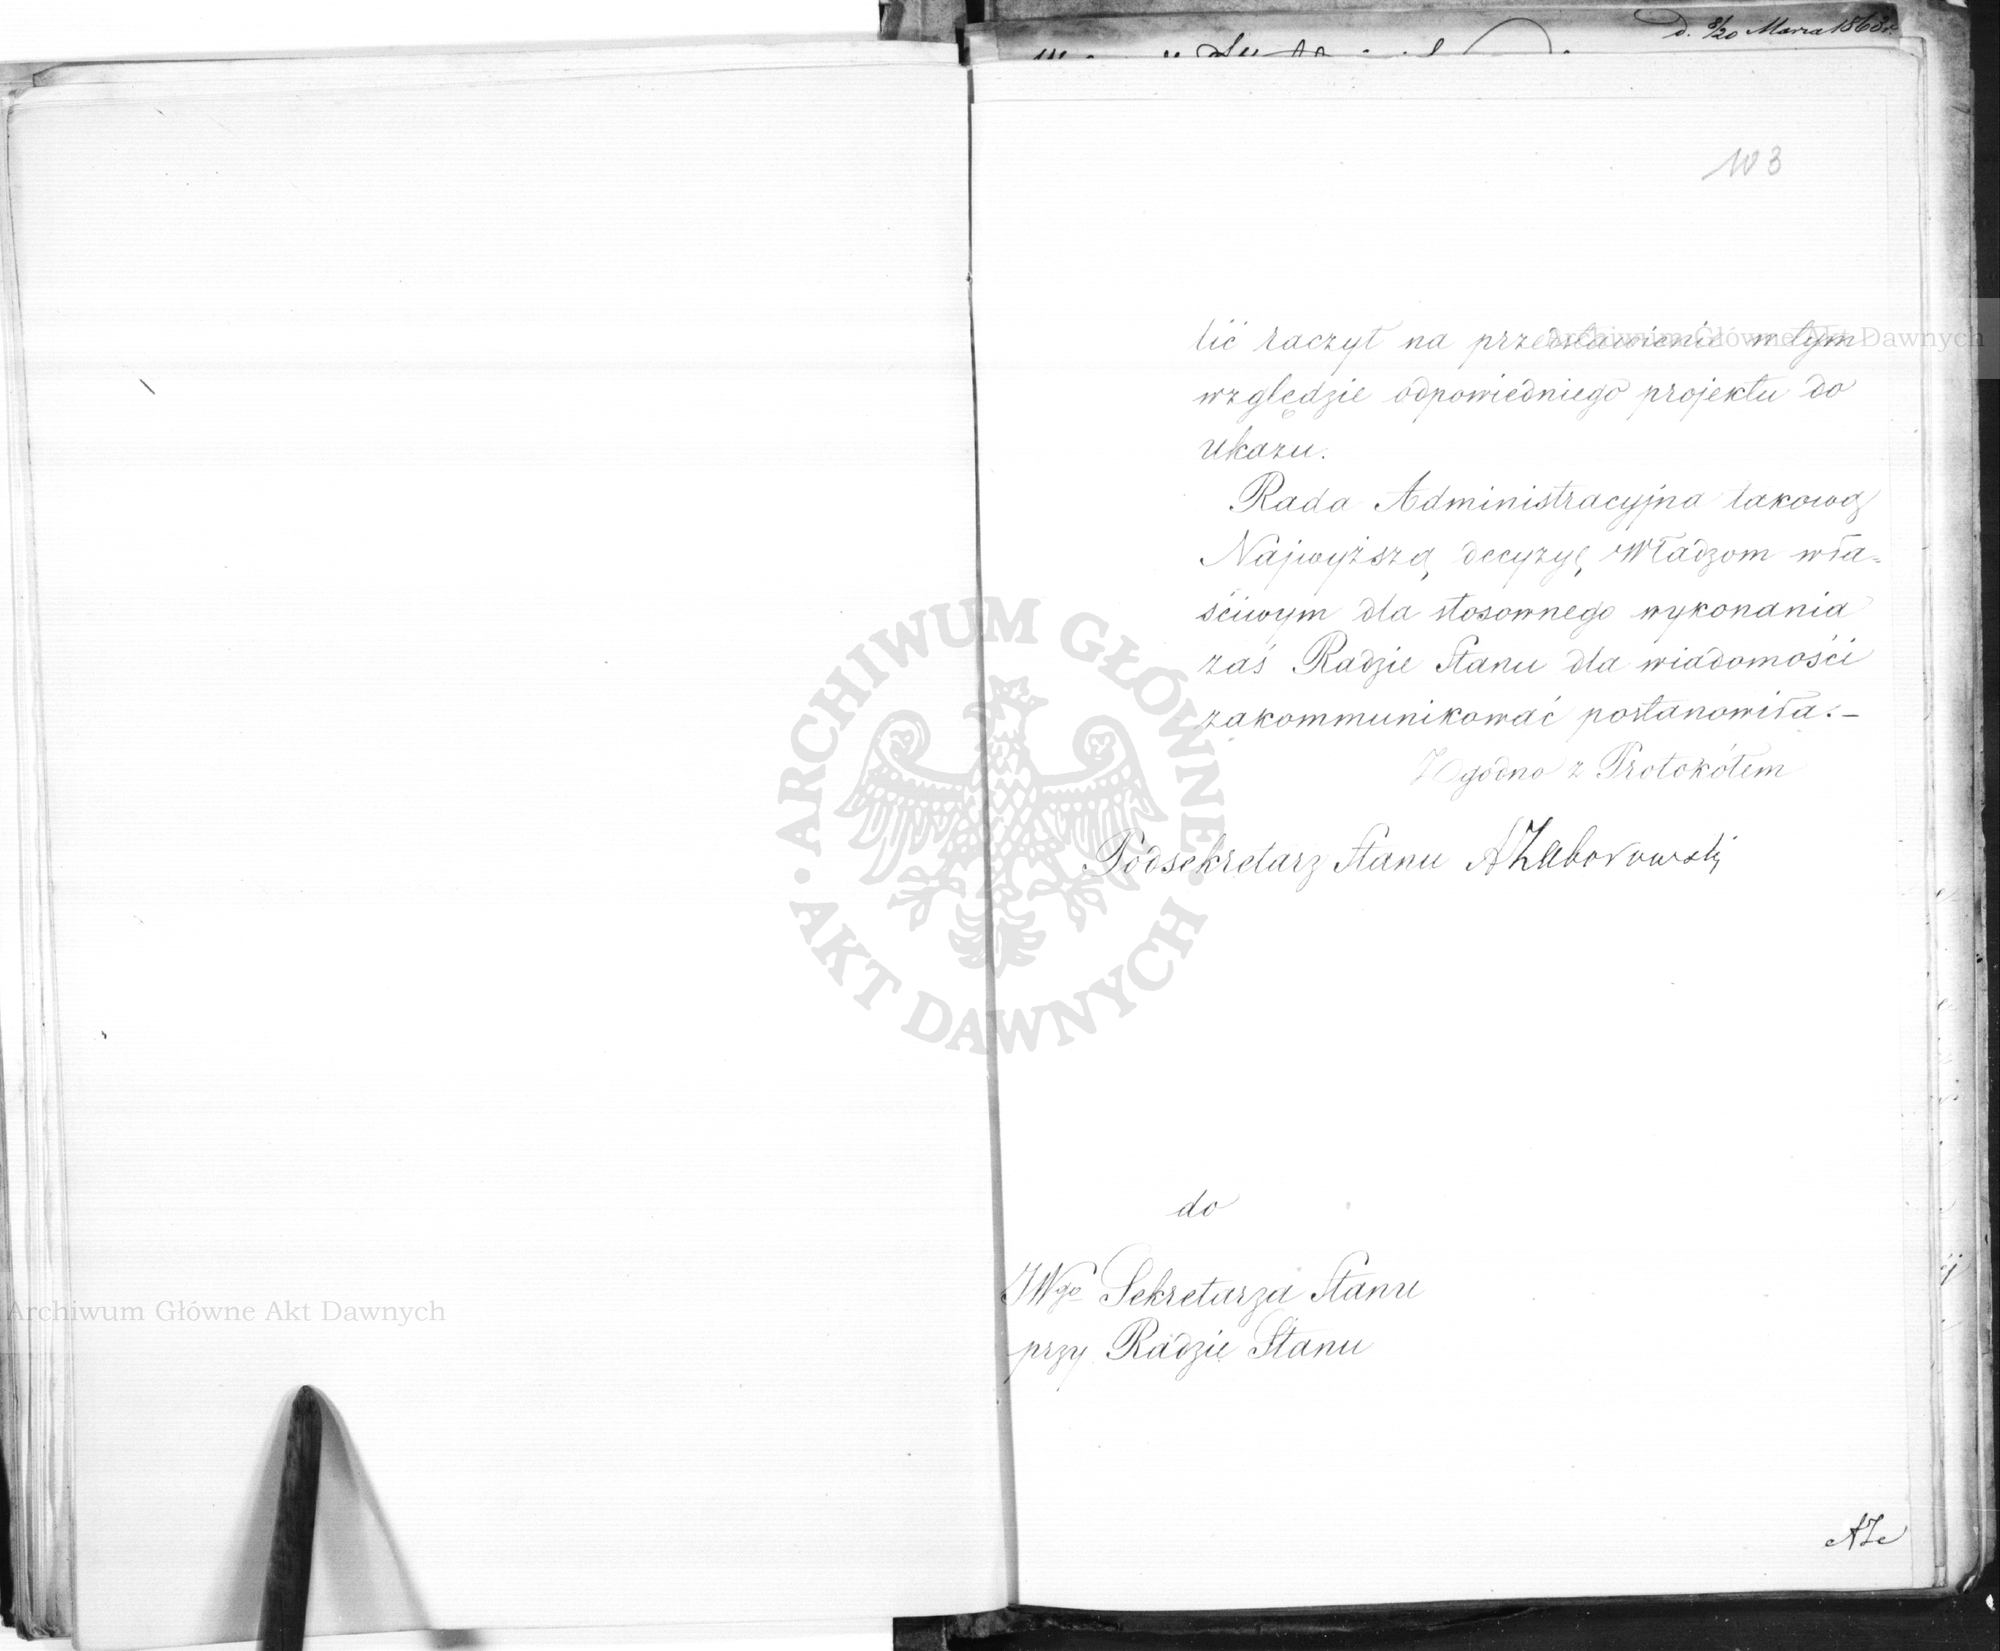 D. 8/20 Marca 1863 r.
103
lić raczył na przedstawienie w tym
względzie odpowiedniego projektu do
ukazu.
Rada Administracyjna takową
Najwyższą decyzyę Władzom wła-
ściwym dla stosownego wykonania
zaś Radzie Stanu dla wiadomości
zakommunikować postanowiła.–
Zgodno z Protokółem
Podsekretarz Stanu AZaborowski
do
JWgo Sekretarza Stanu
przy Radzie Stanu
AZe
Archiwum Główne Akt Dawnych
ARCHIWUM GŁÓWNE AKT DAWNYCH
Archiwum Główne Akt Dawnych